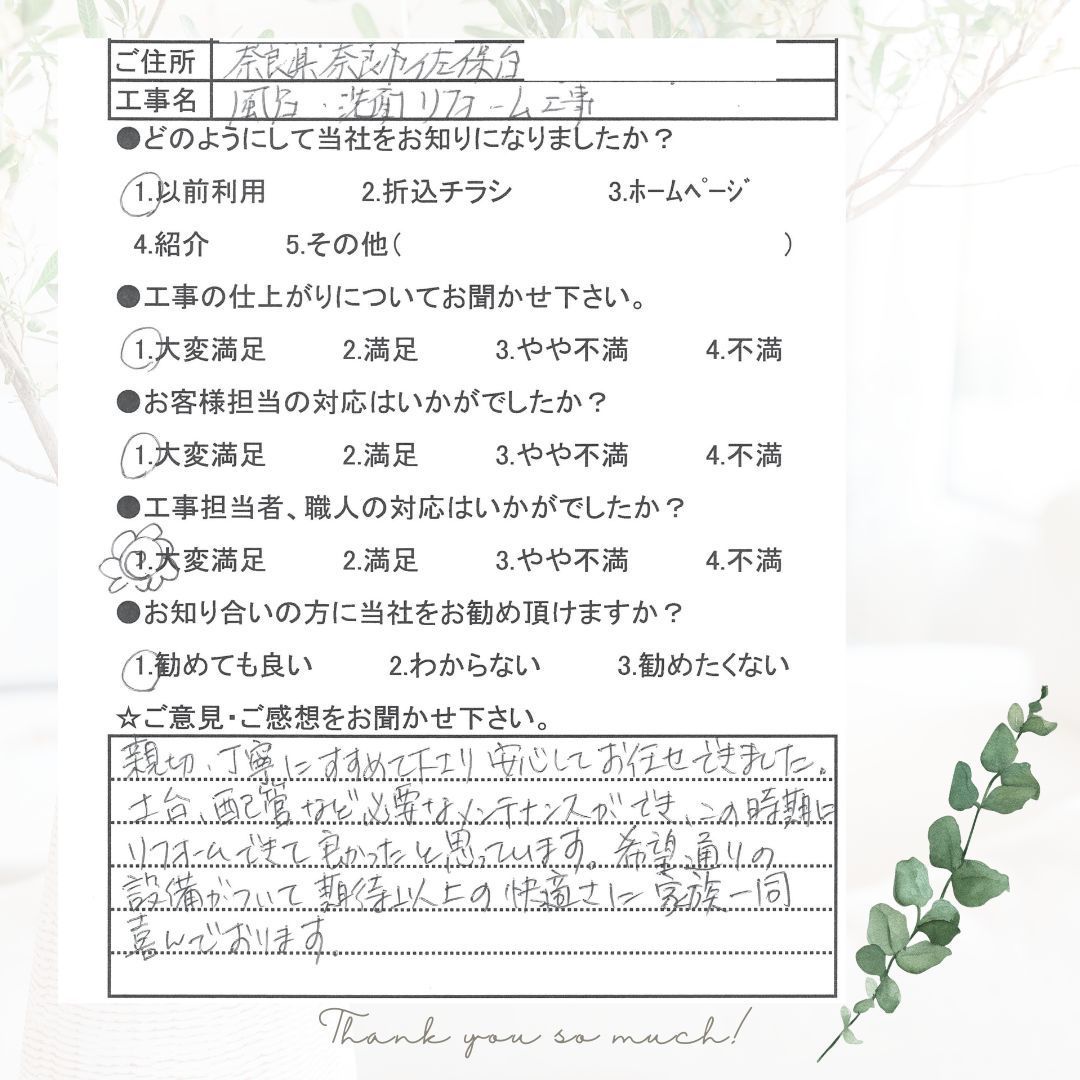 ご住所 奈良県奈良市佐保台
工事名 風呂・洗面リフォーム工事
●どのようにして当社をお知りになりましたか？
1.以前利用 2.折込チラシ 3.ﾎｰﾑﾍﾟｰｼﾞ
4.紹介 5.その他( )
●工事の仕上がりについてお聞かせ下さい。
1.大変満足 2.満足 3.やや不満 4.不満
●お客様担当の対応はいかがでしたか？
1.大変満足 2.満足 3.やや不満 4.不満
●工事担当者、職人の対応はいかがでしたか？
1.大変満足 2.満足 3.やや不満 4.不満
●お知り合いの方に当社をお勧め頂けますか？
1.勧めても良い 2.わからない 3.勧めたくない
☆ご意見・ご感想をお聞かせ下さい。
親切、丁寧にすすめて下さり安心してお任せできました。
土台、配管など必要なメンテナンスができ、この時期に
リフォームできて良かったと思っています。希望通りの
設備がついて期待以上の快適さに家族一同
喜んでおります。
Thank you so much!